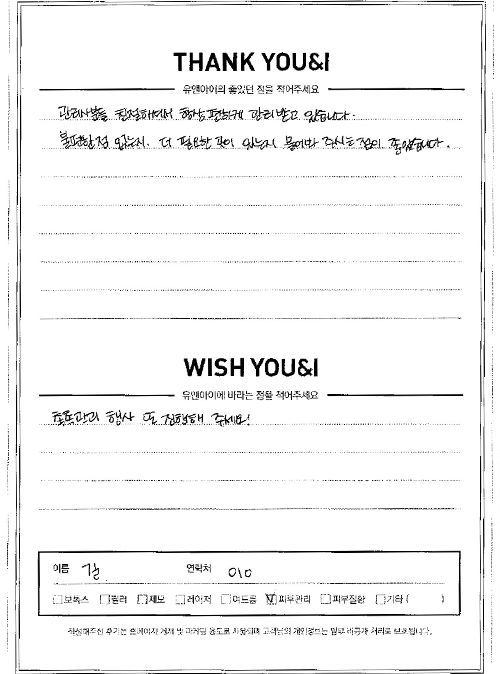 THANK YOU&I
유앤아이의 좋았던 점을 적어주세요
관리사분들 친절하셔서 항상 편하게 관리받고 있습니다.
불편한점 없는지. 더 필요한 것이 있는지 물어봐 주시는 점이 좋았습니다.
WISH YOU&I
유앤아이에 바라는 점을 적어주세요
촉촉관리 행사 또 진행해 주세요!
이름 김 연락처 010
보톡스 필러 제모 레이저 여드름 피부관리 피부질환 기타 ( )
작성해주신 후기는 홈페이지 게재 및 마케팅 용도로 사용되며 고객님의 개인정보는 일부 비공개 처리로 보호됩니다.